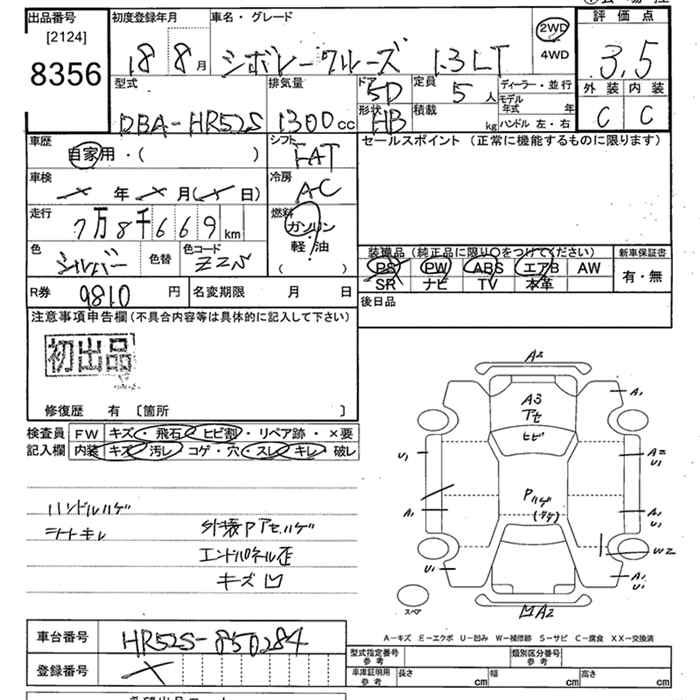 出品番号
[2124]
8356
初度登録年月
18 8月
車名・グレード
シボレークルーズ 1.3LT
2WD
4WD
評価点
3.5
外装 内装
C C
型式
DBA-HR52S
排気量
1300cc
ドア
5D
形状
HB
定員
5人
積載
kg
ディーラー・並行
モデル年式 年
ハンドル 左・右
車歴
自家用・( )
シフト
FAT
車検
年 月( 日)
冷房
AC
走行
7万8千669km
燃料
ガソリン
軽油
( )
色
シルバー
色替
色コード
ZZS
セールスポイント (正常に機能するものに限ります)
装備品 (純正品に限り○をつけてください)
PS PW ABS エアB AW
SR ナビ TV 本革
新車保証書
有・無
R券 9810円
名変期限 月 日
後日品
注意事項申告欄 (不具合内容等は具体的に記入して下さい)
初出品
修復歴 有 [箇所 ]
検査員
記入欄
FW キズ・飛石・ヒビ割・リペア跡・×要
内装 キズ・汚レ・コゲ・穴・スレ・キレ・破レ
ハンドルハゲ
シートキレ
外装Pアセハゲ
エンドパネル歪
キズ凹
A2
A3
アセ
ヒビ
A1
U1
A2
U1
A1
Pハゲ
A1
U1
W2
A1
U1
スペア
A2
A-キズ E-エクボ U-凹み W-補修跡 S-サビ C-腐食 XX-交換済
車台番号
HR52S-850284
登録番号
型式指定番号
参考
類別区分番号
参考
車庫証明用
参考
長さ cm
幅 cm
高さ cm